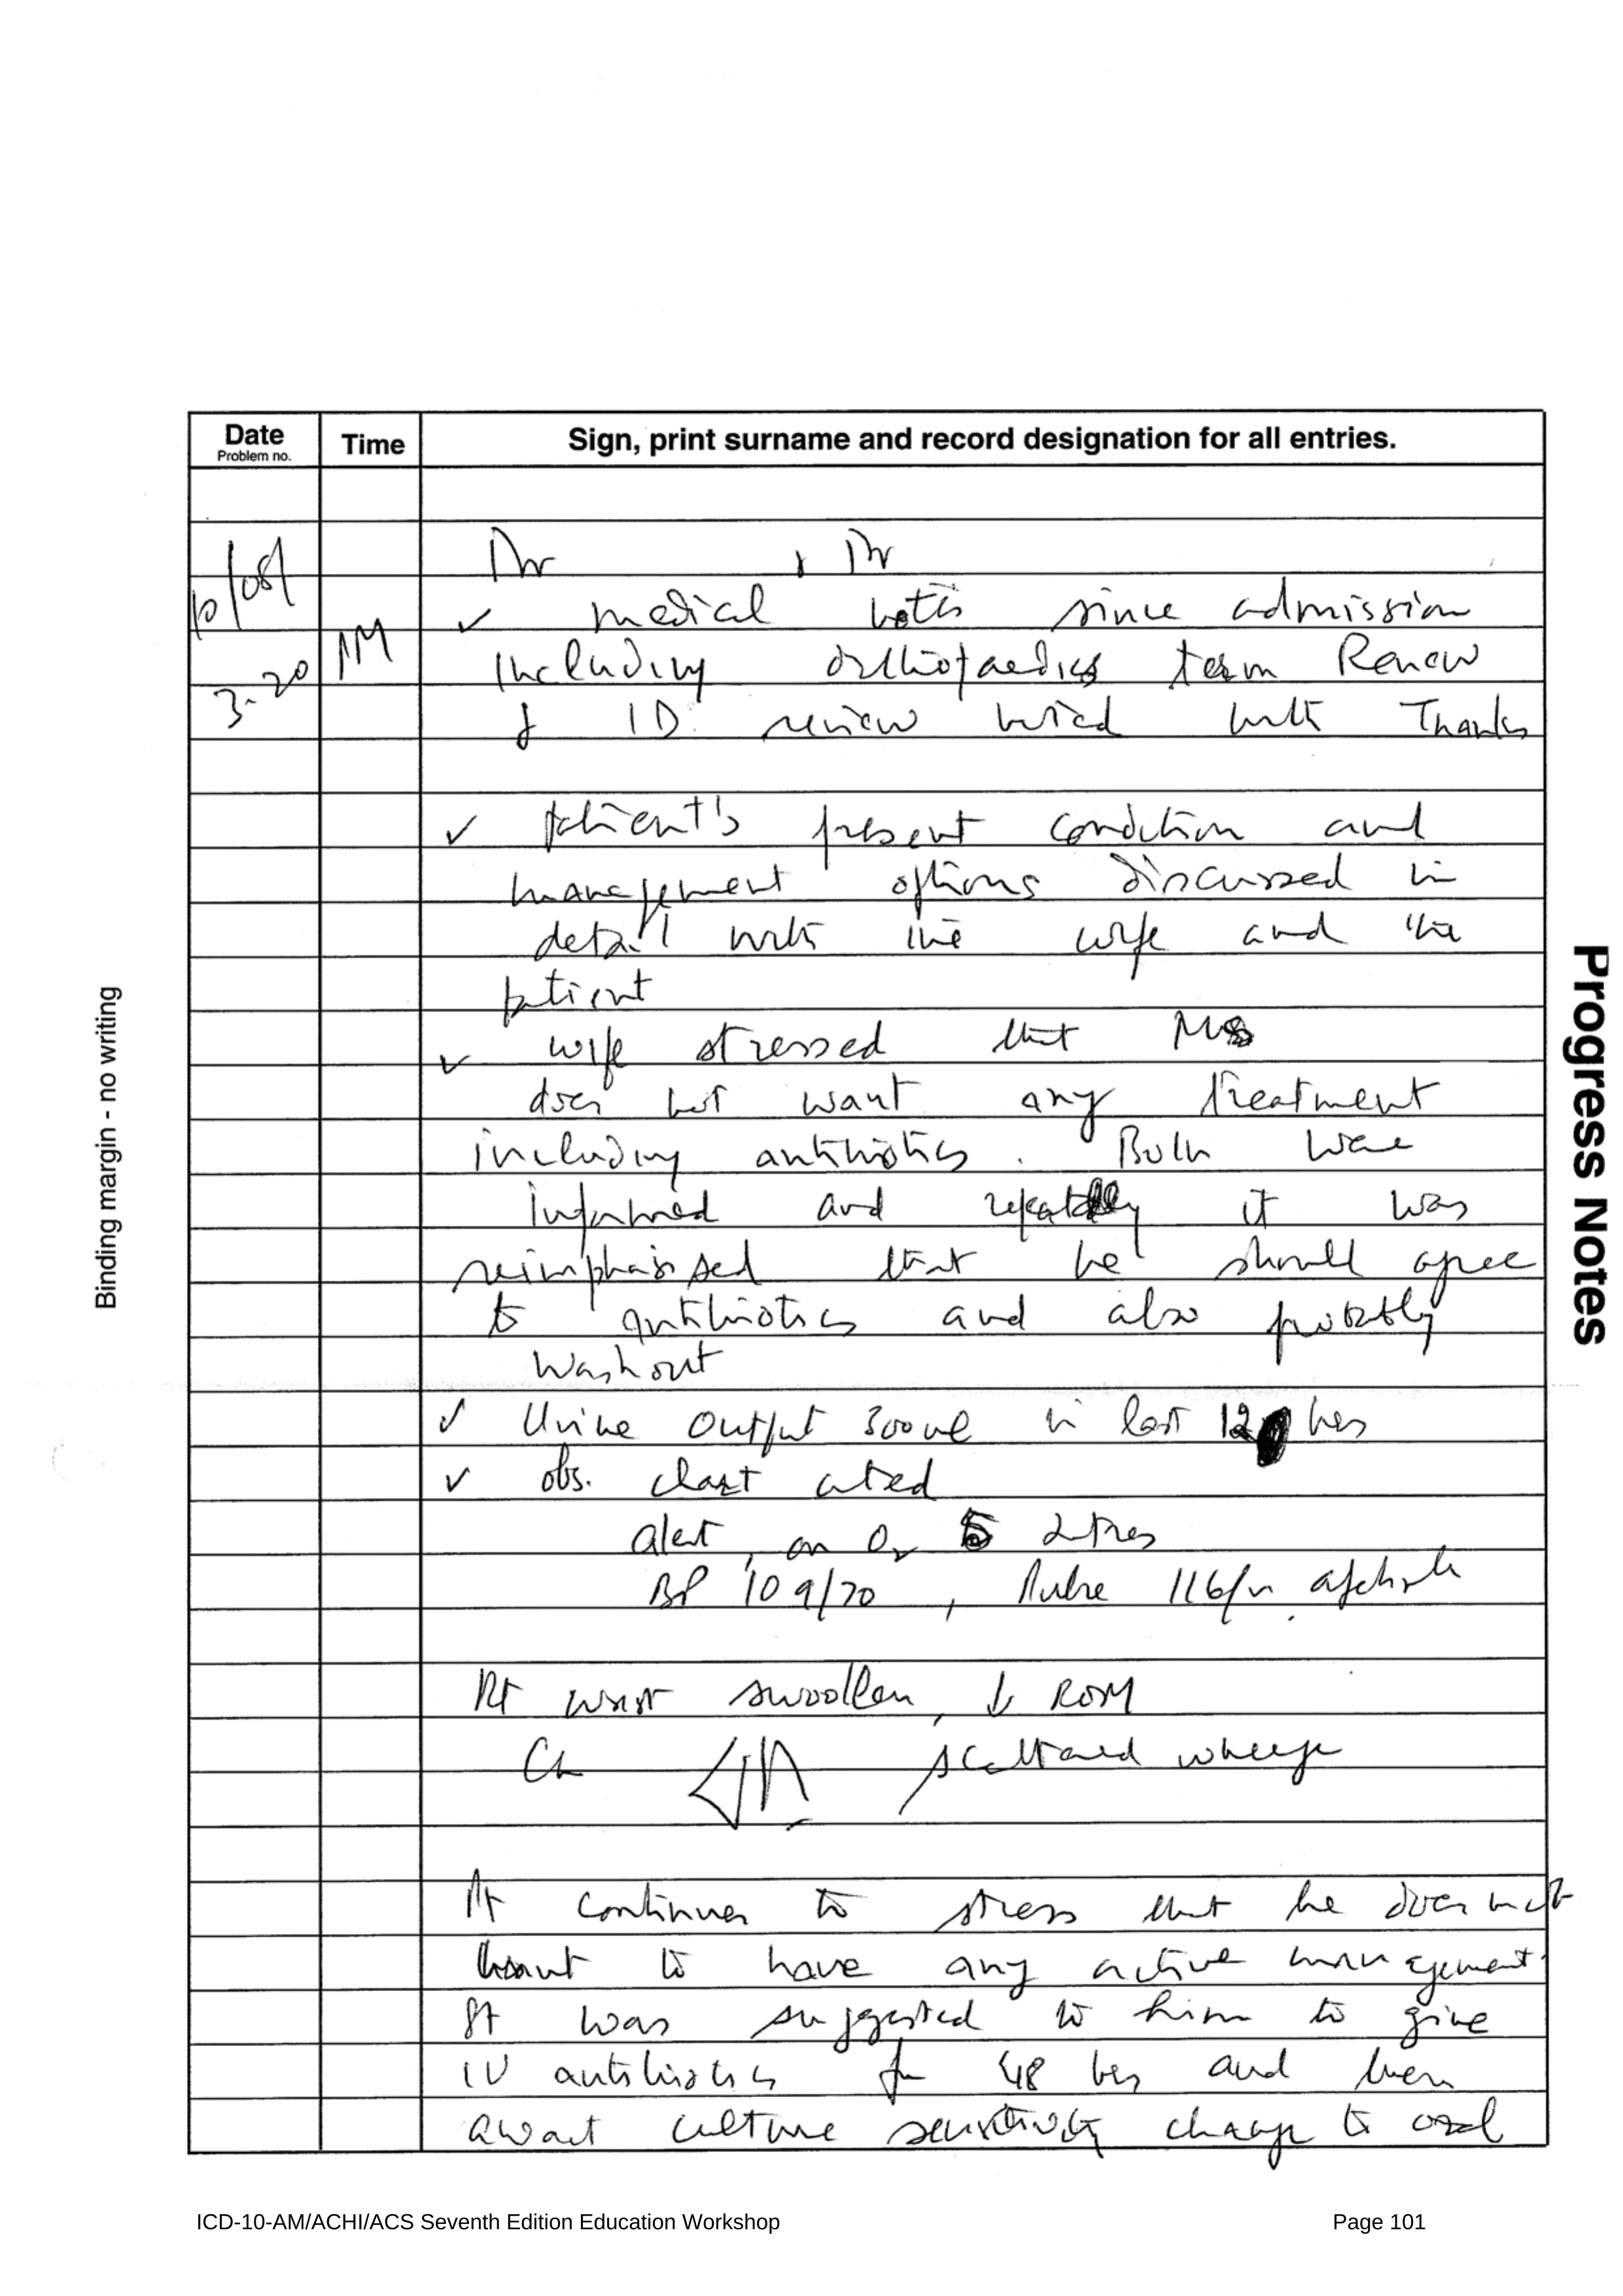 Date
Problem no.
Time
Sign, print surname and record designation for all entries.
10/08/
3.20 AM
Dr & Dr
✓ medical notes since admission
including orthopaedics team Review
& ID review noted with Thanks
✓ patient's present condition and
management options discussed in
detail with the wife and the
patient
✓ wife stressed that
does not want any treatment
including antibiotics. Both were
informed and repeatedly it was
reimphasised that he should agree
to antibiotics and also probably
washout
✓ Urine output 300 ml in last 12 hrs
✓ obs. chart noted
alert, on O2 2 litres
BP 109/70, Pulse 116/m afebrile
Rt wrist swollen, ↓ ROM
scattered wheeze
Pt continues to stress that he does not
want to have any active management.
It was suggested to him to give
IV antibiotics for 48 hrs and then
await culture sensitivity change to oral
Binding margin - no writing
Progress Notes
ICD-10-AM/ACHI/ACS Seventh Edition Education Workshop
Page 101